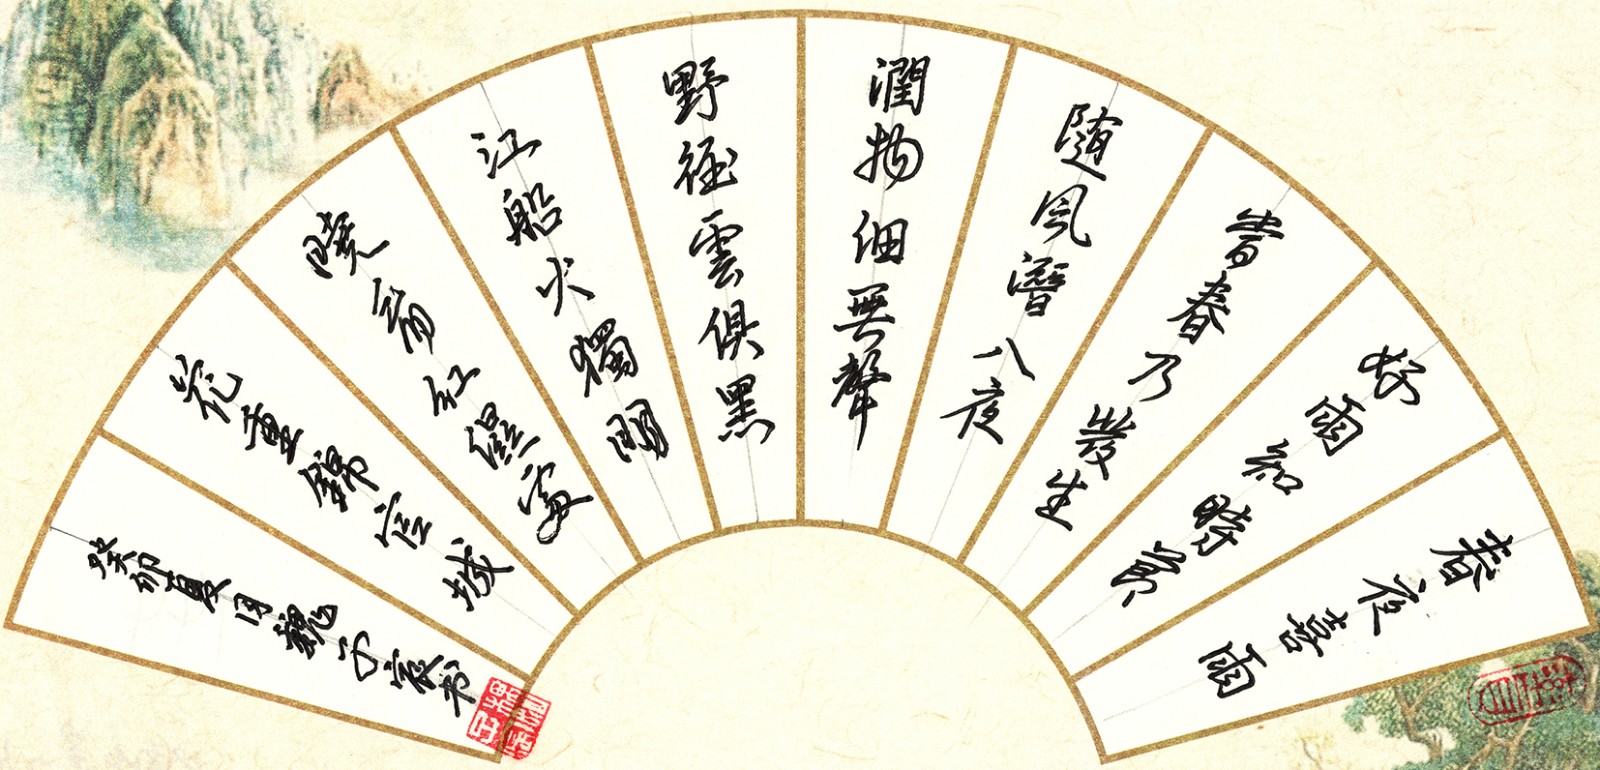 春夜喜雨
好雨知時節
當春乃發生
隨風潛入夜
潤物細無聲
野徑雲俱黑
江船火獨明
曉看紅濕處
花重錦官城
癸卯夏月魏守书